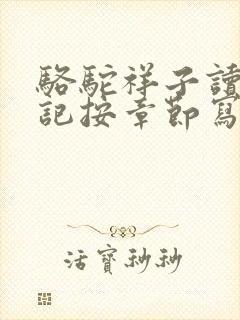 駱駝祥子讀
記按章節寫
活寶秒秒